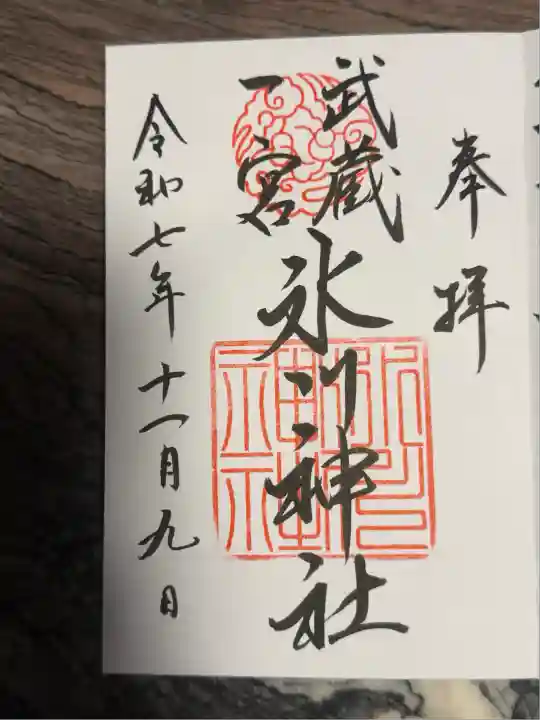 奉拝
武蔵
一宮
氷川神社
令和七年十一月九日
氷川
神社